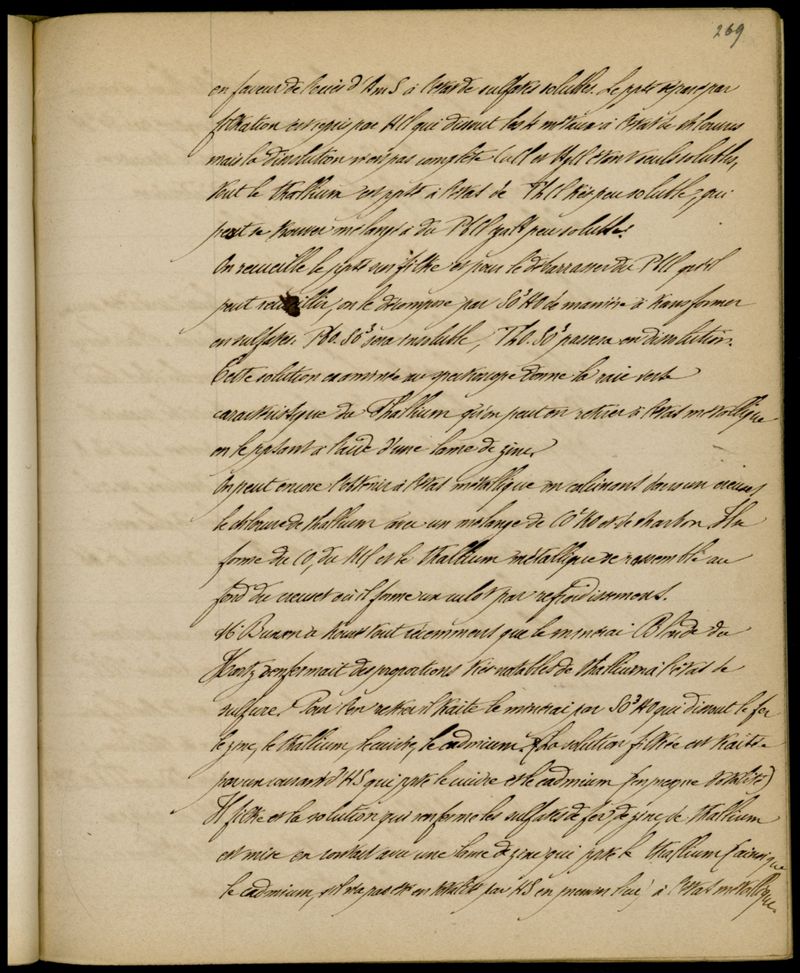 269
en faveur de l'excès d'AmS à l'état de sulfates solubles. Le ppté séparé par
filtration est repris par HCl qui dissout les métaux à l'état de chlorures
mais la dissolution n'est pas complète CuCl et HgCl étant seuls solubles,
tout le thallium est ppté à l'état de ThCl très peu soluble, qui
peut se trouver mélangé à du PbCl peu soluble.
On recueille le ppté sur filtre et pour le débarrasser du PbCl qu'il
peut recueillir, on le décompose par SO³HO de manière à transformer
en sulfates. PbO.SO³ sera insoluble, ThO.SO³ passera en dissolution.
Cette solution examinée au spectroscope donne la raie verte
caractéristique du Thallium qu'on peut en retirer à l'état métallique
en le pptant à l'aide d'une lame de zinc.
On peut encore l'obtenir à l'état métallique en calcinant dans un creuset
le chlorure de thallium avec un mélange de et de charbon Il se
forme du CO, du et le thallium métallique se rassemble au
fond du creuset où il forme un culot par refroidissement.
Mr Bunsen a trouvé tout récemment que le minerai Blende du
Hartz renfermait des proportions très notables de thallium à l'état de
sulfure. Pour l'en retirer il traite le minerai par SO³HO qui dissout le fer
le zinc, le thallium, le cuivre, le cadmium. La solution filtrée est traitée
par un courant d'HS qui ppte le cuivre et le cadmium (en presque totalité)
Il filtre et la solution qui renferme les sulfates de fer de zinc de thallium
est mise en contact avec une lame de zinc qui ppte le thallium (ainsi que
le cadmium, s'il n'a pas été en totalité par HS en premier lieu) à l'état métallique.